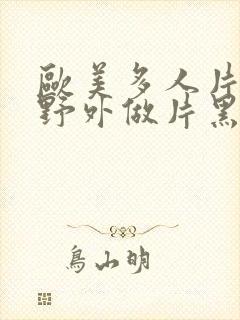 歐美多人片
野外做片黑
鳥山明